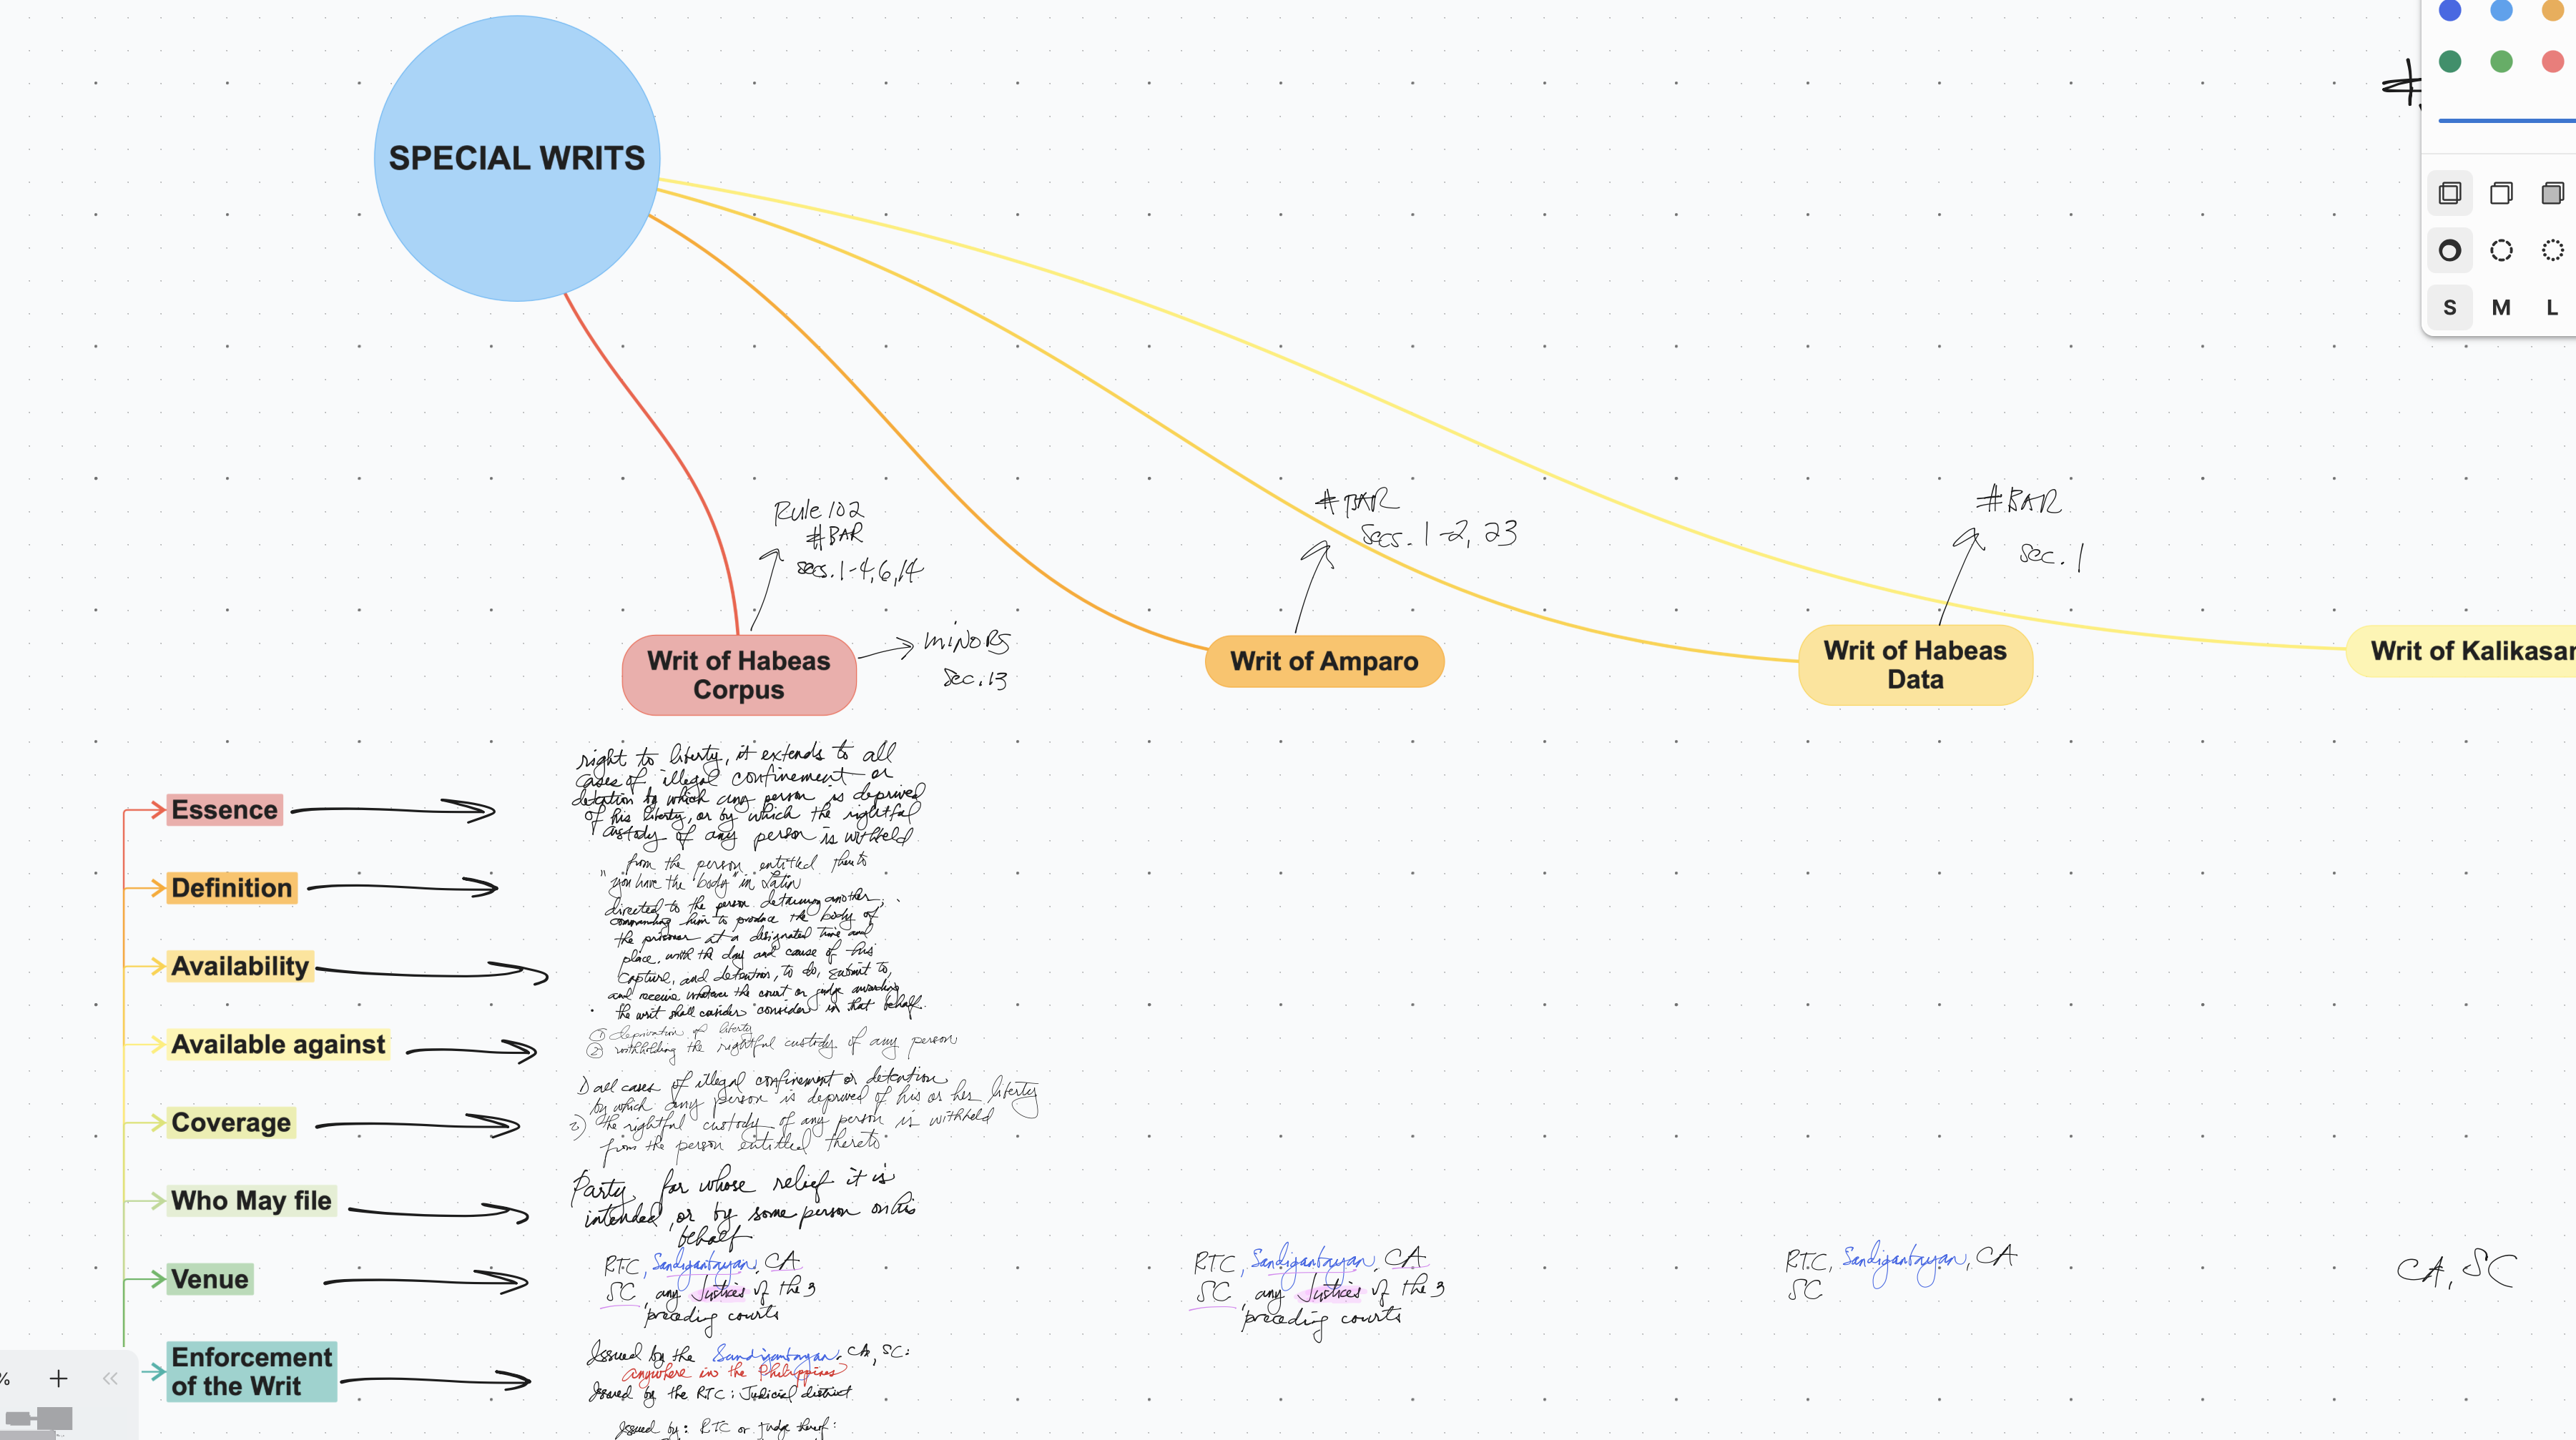 SPECIAL WRITS
S M L
#BAR
Secs. 1-2, 23
#BAR
Sec. 1
Rule 102
#BAR
secs. 1-4, 6, 14
Writ of Habeas
Corpus
minors
Sec. 13
Writ of Amparo
Writ of Habeas
Data
Writ of Kalikasan
Essence
right to liberty, it extends to all
cases of illegal confinement or
detention by which any person is deprived
of his liberty, or by which the rightful
custody of any person is withheld
from the person entitled thereto
Definition
"you have the body" in Latin
directed to the person detaining another,
commanding him to produce the body of
the prisoner at a designated time and
place, with the day and cause of his
capture, and detention, to do, submit to,
and receive whatever the court or judge awarding
the writ shall consider in that behalf.
Availability
① deprivation of liberty
② withholding the rightful custody of any person
Available against
1) all cases of illegal confinement or detention
by which any person is deprived of his or her liberty
2) the rightful custody of any person is withheld
from the person entitled thereto
Coverage
Who May file
Party for whose relief it is
intended, or by some person on his
behalf
Venue
RTC, Sandiganbayan, CA
SC, any Justices of the 3
preceding courts
RTC, Sandiganbayan, CA
SC, any Justices of the 3
preceding courts
RTC, Sandiganbayan, CA
SC
CA, SC
Enforcement
of the Writ
Issued by the Sandiganbayan, CA, SC:
anywhere in the Philippines
Issued by the RTC: Judicial district
Issued by: RTC or judge thereof:
%